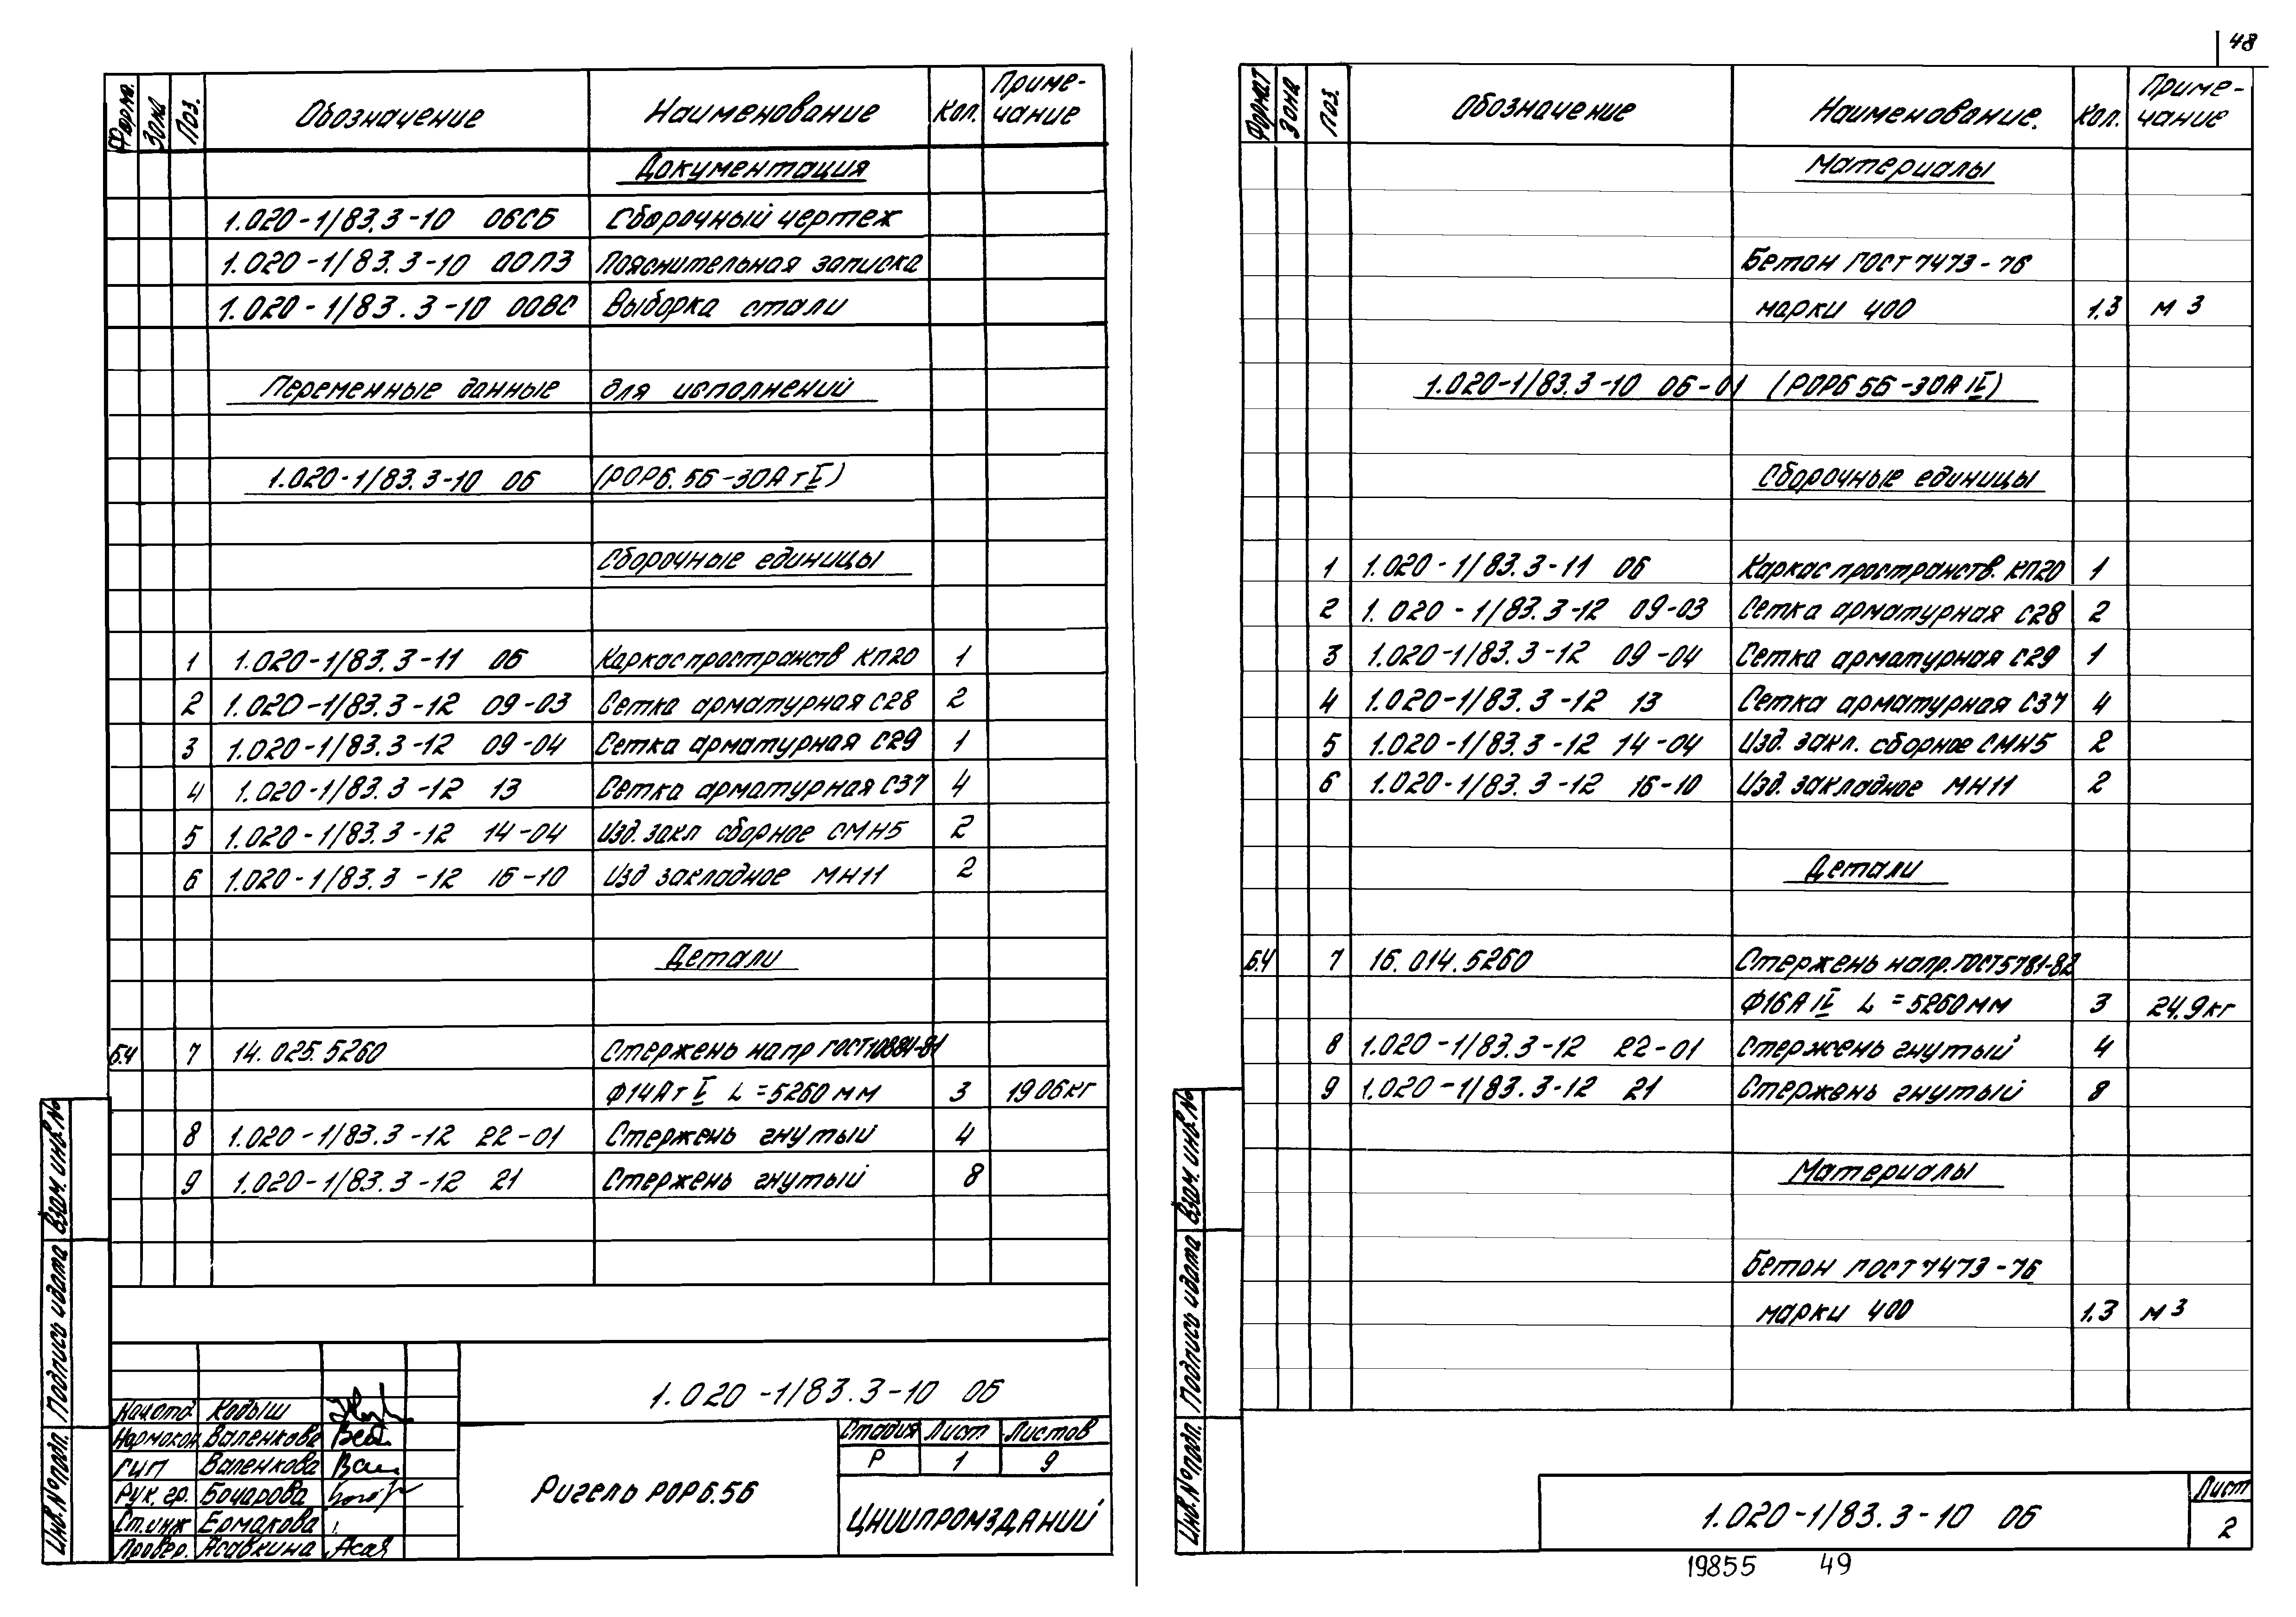 48
Форм. Зона Поз. Обозначение Наименование Кол. Приме-
чание
Документация
1.020-1/83.3-10 06СБ Сборочный чертеж
1.020-1/83.3-10 00ПЗ Пояснительная записка
1.020-1/83.3-10 00ВС Выборка стали
Переменные данные для исполнений
1.020-1/83.3-10 06 (РОР6.56-30АтV)
Сборочные единицы
1 1.020-1/83.3-11 06 Каркас пространств КП20 1
2 1.020-1/83.3-12 09-03 Сетка арматурная С28 2
3 1.020-1/83.3-12 09-04 Сетка арматурная С29 1
4 1.020-1/83.3-12 13 Сетка арматурная С37 4
5 1.020-1/83.3-12 14-04 Изд. закл сборное СМН5 2
6 1.020-1/83.3-12 16-10 Изд закладное МН11 2
Детали
Б.Ч 7 14.025.5260 Стержень напр ГОСТ10884-81
Ф14АтV L=5260мм 3 19 06кг
8 1.020-1/83.3-12 22-01 Стержень гнутый 4
9 1.020-1/83.3-12 21 Стержень гнутый 8
1.020-1/83.3-10 06
Нач.отд Кодыш
Нормокон. Валенкова
ГИП Валенкова
Рук. гр. Бочарова
Ст.инж Ермакова
Провер. Асавкина
Ригель РОР6.56
Стадия Лист Листов
Р 1 9
ЦНИИПРОМЗДАНИЙ
Инв.№подл. Подпись и дата Взам. инв.№
Формат Зона Поз. Обозначение Наименование. Кол. Приме-
чание
Материалы
Бетон ГОСТ 7473-76
марки 400 1.3 м3
1.020-1/83.3-10 06-01 (РОР6 56-30АIV)
Сборочные единицы
1 1.020-1/83.3-11 06 Каркас пространств. КП20 1
2 1.020-1/83.3-12 09-03 Сетка арматурная С28 2
3 1.020-1/83.3-12 09-04 Сетка арматурная С29 1
4 1.020-1/83.3-12 13 Сетка арматурная С37 4
5 1.020-1/83.3-12 14-04 Изд. закл. сборное СМН5 2
6 1.020-1/83.3-12 16-10 Изд. закладное МН11 2
Детали
Б.Ч 7 16.014.5260 Стержень напр. ГОСТ5781-82
Ф16АIV L=5260мм 3 24.9кг
8 1.020-1/83.3-12 22-01 Стержень гнутый 4
9 1.020-1/83.3-12 21 Стержень гнутый 8
Материалы
Бетон ГОСТ 7473-76
марки 400 1.3 м3
Инв.№подл. Подпись и дата Взам. инв.№
1.020-1/83.3-10 06
Лист
2
19855 49